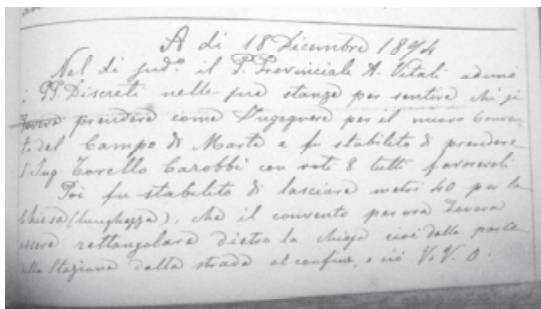 A di 18 Dicembre 1894
Nel di sud.º il P. Provinciale A. Vitali adunò
i PP Discreti nelle sue stanze per sentire chi si
prendere come Ingegnere per il nuovo Conven-
to del Campo di Marte e fu stabilito di prendere
l'Ing Torello Carobbi con voti 8 tutti favorevoli
Poi fu stabilito di lasciare metri 40 per la
Chiesa (lunghezza), che il convento per ora
essere rettangolare dietro la chiesa cioè dalla parte
della Stazione dalla strada al confine, e ciò V. V. 0.